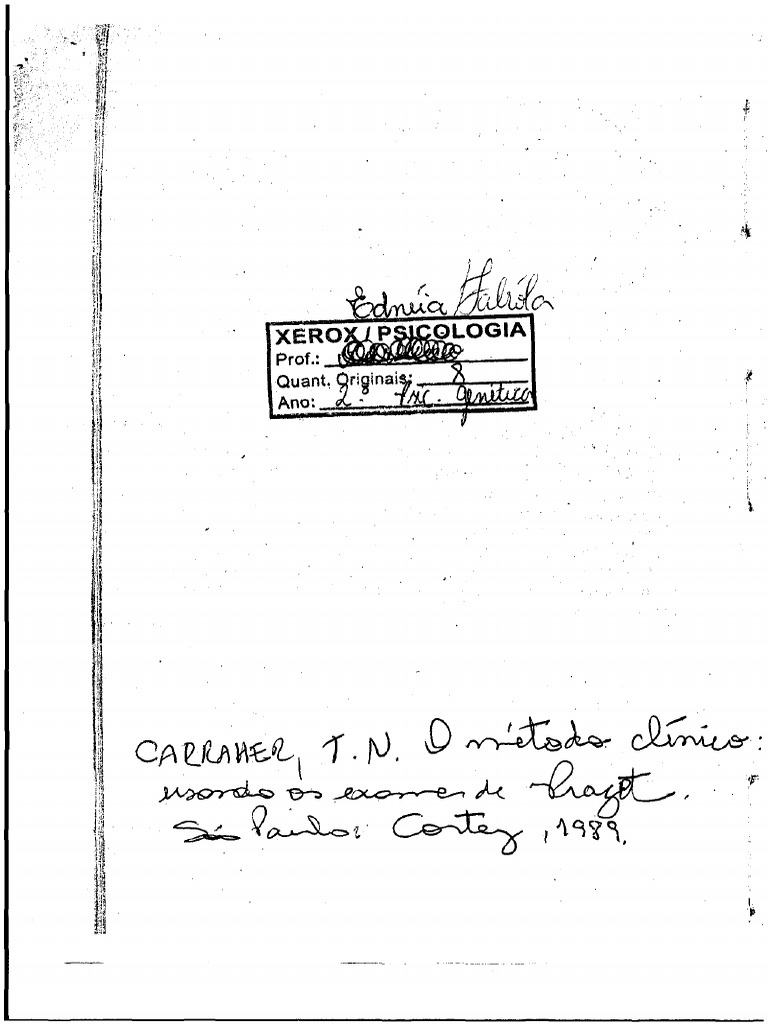 Ednéia
XEROX / PSICOLOGIA
Prof.:
Quant. Originais: 8
Ano: 2º Psc. genética
CARRAHER, T.N. O método clínico:
usando os exames de Piaget.
São Paulo: Cortez, 1989.